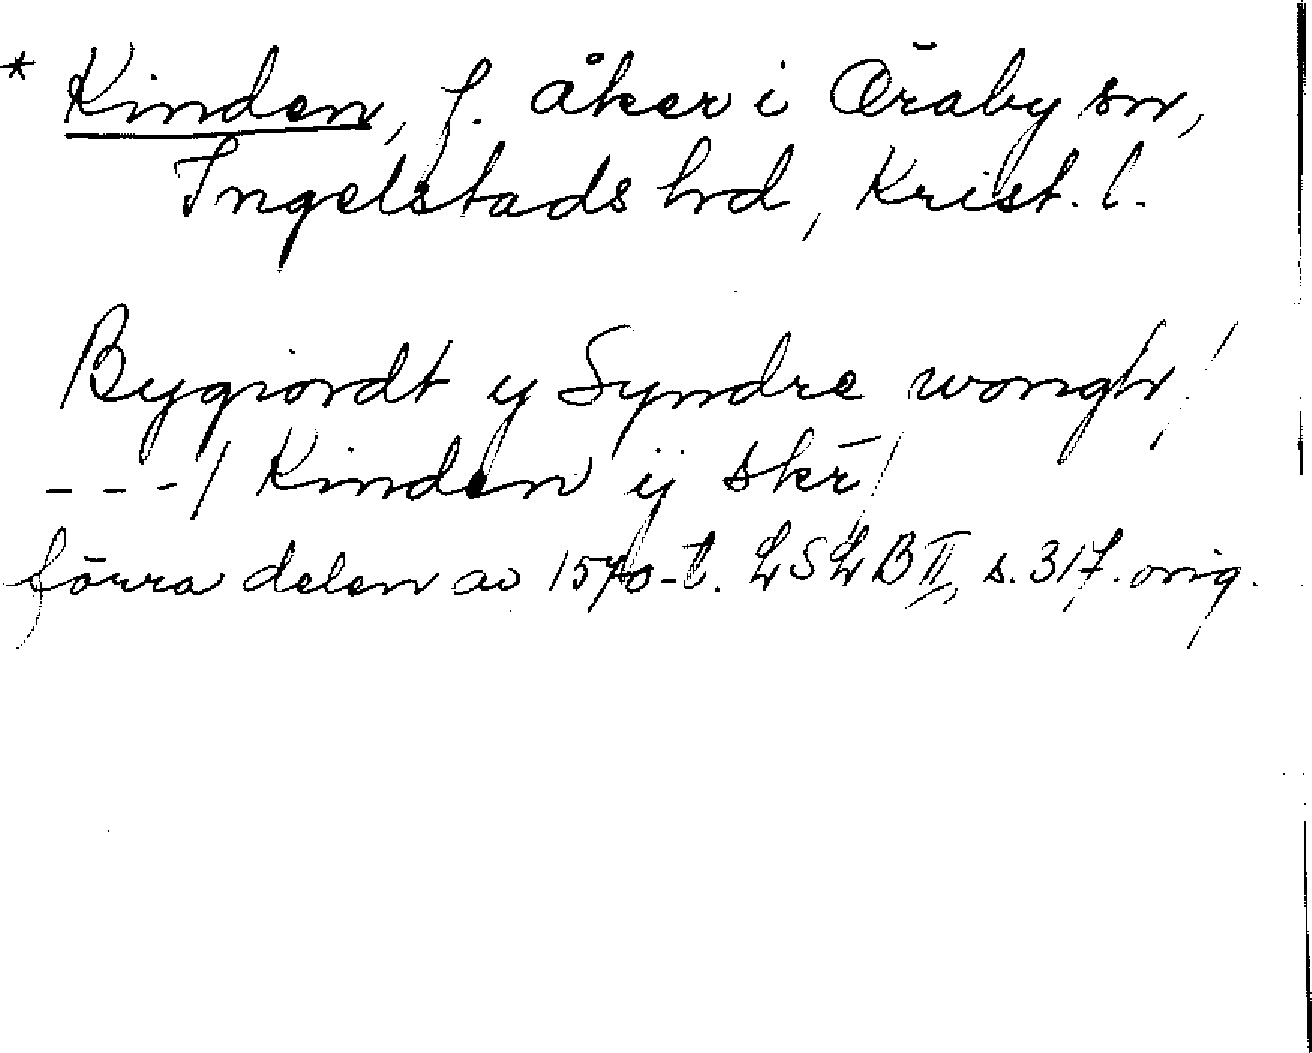 * Kinden, f. åker i Öraby sn,
Ingelstads hd, Krist. l.
Bygiordt y Syndre wongh/
- - -/ Kinden ij skr̄/
förra delen av 1570-t. LSLB II, s. 317. orig.